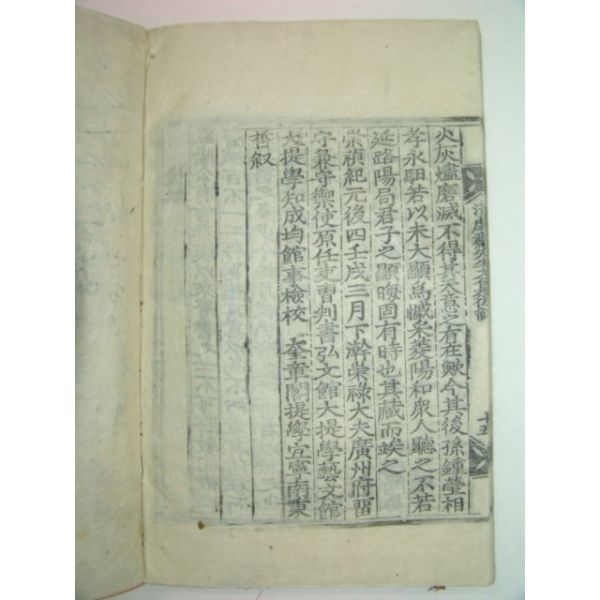 火灰燼磨滅不得其天意之有在歟今其後孫鍾瑩相
孝永馹若以未大顯爲憾宋菱陽和衆人聽之不若
延路陽局君子之顯晦固有時也其藏而竢之
崇禎紀元後四壬戌三月下澣榮祿大夫廣州府留
守兼守禦使原任吏曹判書弘文館大提學藝文館
大提學知成均館事檢校 奎章閣提學宜寧南秉
哲叙
十五